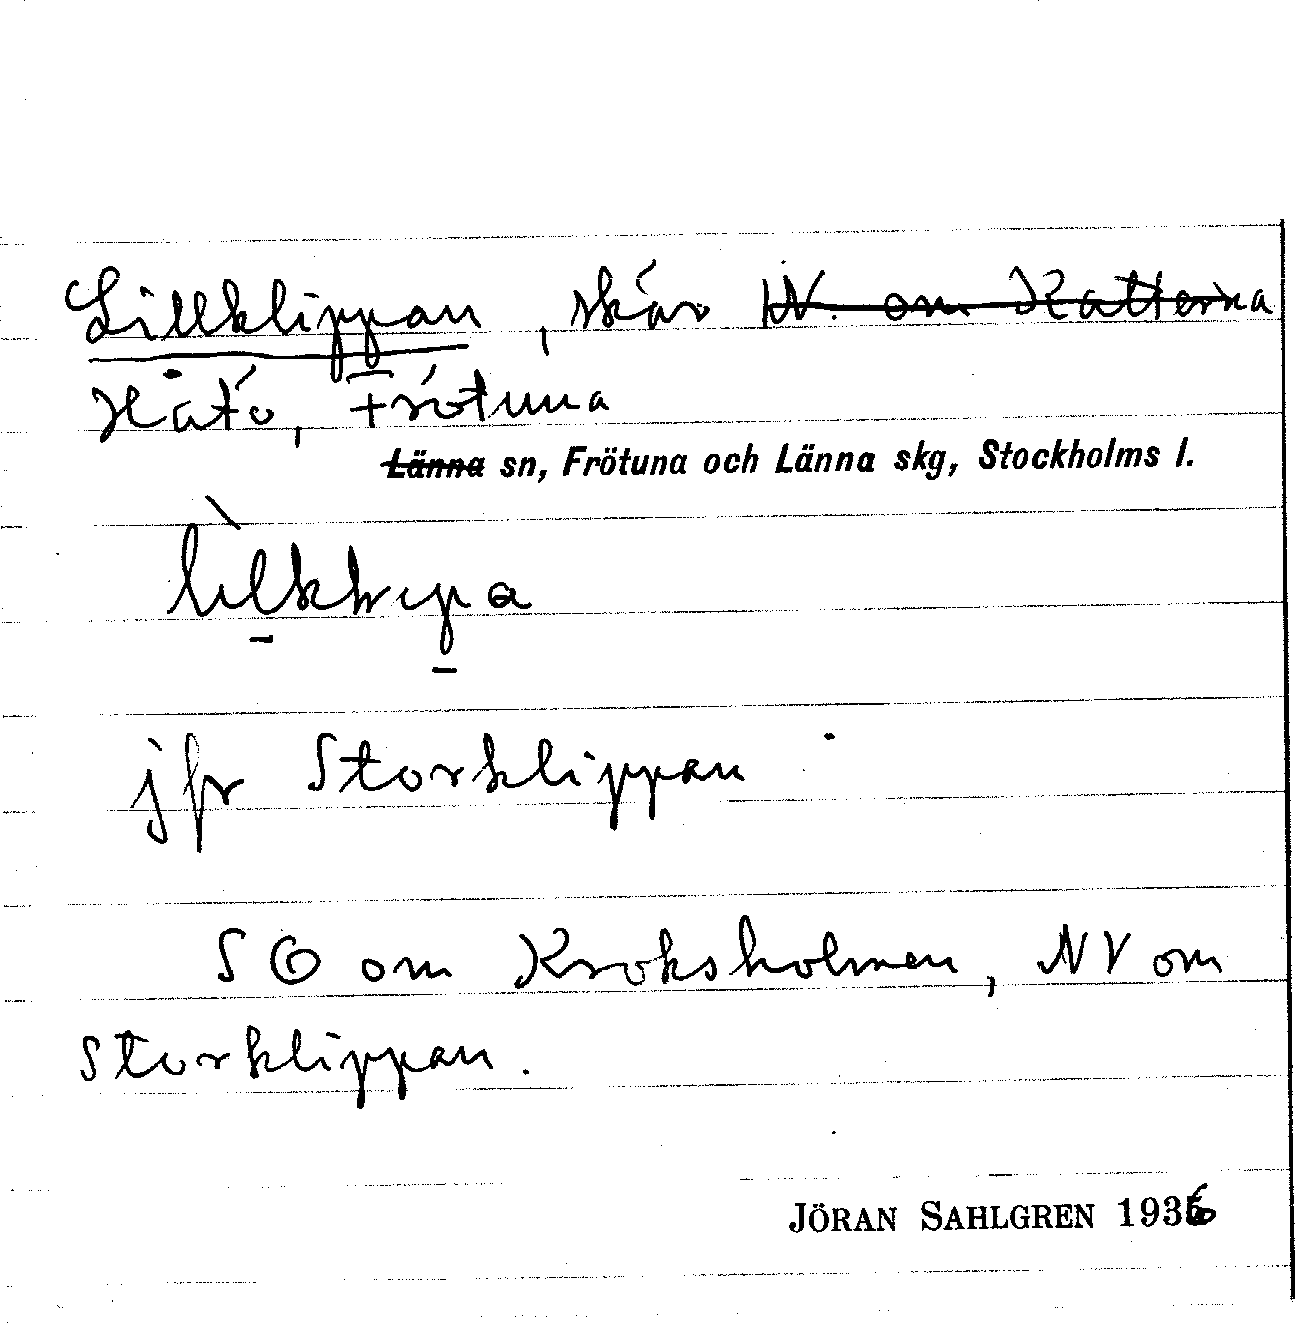 Lillklippan, skär N. om Katterna
Hatö, Frötuna
Länna sn, Frötuna och Länna skg, Stockholms l.
lilkklipa
jfr Storklippan
SO om Kroksholmen, NV om
Storklippan.
JÖRAN SAHLGREN 1936